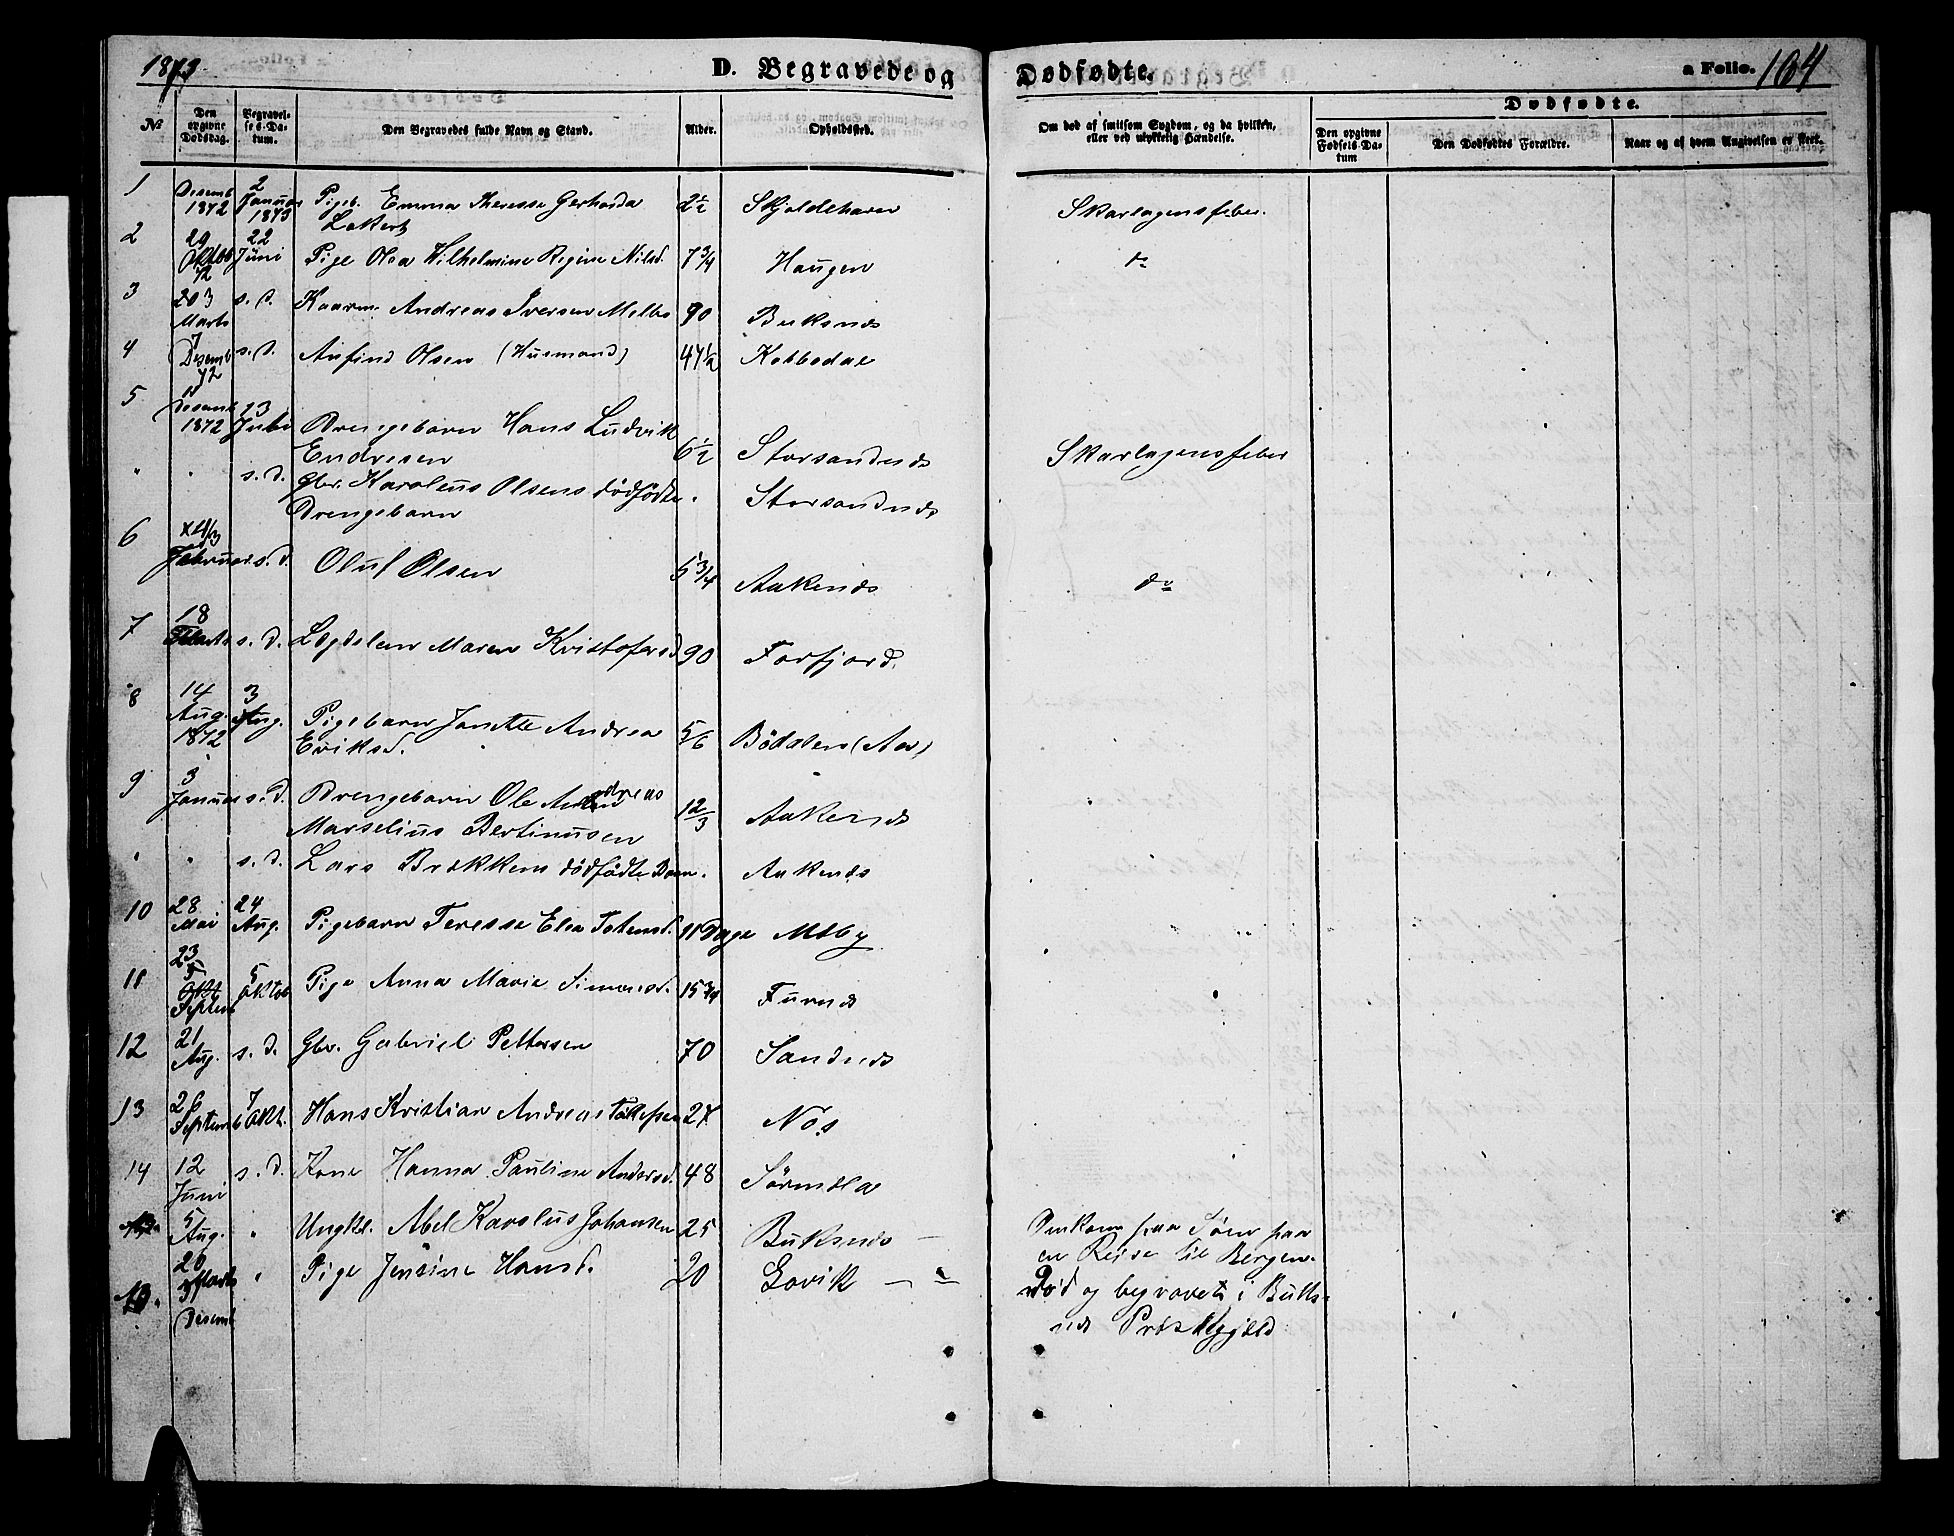 1873 D. Begravede og Dødfødte. a Folio. 164
№ Den opgivne Dødsdag. Begravelses-Datum. Den Begravedes fulde Navn og Stand. Alder. Opholdssted. Om død af smitsom Sygdom, og da hvilken, eller ved ulykkelig Hændelse. Dødfødte.
Den opgivne Fødsels-Datum Den Dødfødtes Forældre. Naar og af hvem Angivelsen er skeet.
1 Desemb 1872 2 Januar 1873 Pigeb. Emma Therese Gerharda 2½ Skjoldehavn Skarlagensfeber.
Lokert
2 29 Oktbr 72 22 Juni Pige Olea Wilhelmine Regine Nilsd. 7¾ Haugen do
3 Marts s. d. Kaarm. Andreas Iversen Melbo 90 Buksnes
4 7 Desemb 72 s. d. Anfind Olsen (Husmand) 47½ Kobbedal
5 Desemb 1872 13 Juli Drengebarn Hans Ludvik
Endresen 6½ Storsandnes Skarlagensfeber
" " s. d. Gbr. Karoleus Olsens dödfödte
Drengebarn . Storsandnes
6 Februar s. d. Oluf Olsen 5¾ Aakenes do
7 18 s. d. Lægdslem Maren Kristofersd 90 Forfjord.
8 14 Aug. 1872 3 Aug. Pigebarn Janette Andrea
Eriksd. 5/6 Bödalen (Aa)
9 3 Januar s. d. Drengebarn Ole Andreas
Marselius Bertinusen 12/3 Aakenes
" " s. d. Lars Brekkens dödfödte Barn . Aakenes
10 28 Mai 24 Aug. Pigebarn Teresse Elea Totensd. 11 Dage Melby
11 23 Septem 5 Oktob Pige Anna Marie Simonsd. 15¾ Furnes
12 21 Aug. s. d. Gbr. Gabriel Pettersen 70 Sandnes
13 26 Septemb 7 Okt. Hans Kristian Andreas 27 Nøs
14 12 Juni s. d. Kone Hanna Pauline Andersd. 48 Sørmela
5 Aug. " Ungkl. Abel Karolus Johansen 25 Buksnes — Omkom paa Søen paa
en Reise til Bergen.
20 Marts " Pige Jensine Hansd. 20 Govik — " — Död og begravet i Buks-
nes Præstegjeld
3 Desemb